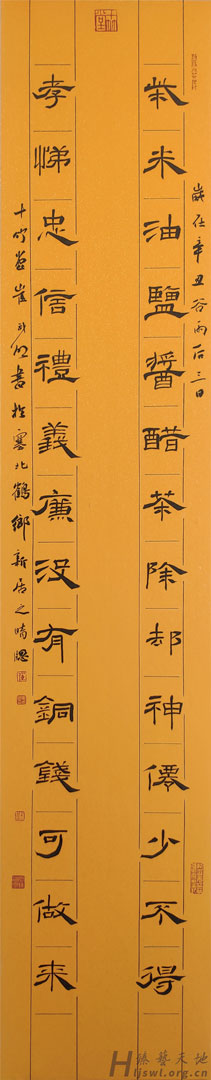 歲在辛丑谷雨后三日
柴米油鹽醬醋茶除却神僊少不得
孝悌忠信禮義廉沒有銅錢可做来
十竹堂崔書於塞北鶴鄉新居之晴牕
臻藝天地
Hljswl.org.cn